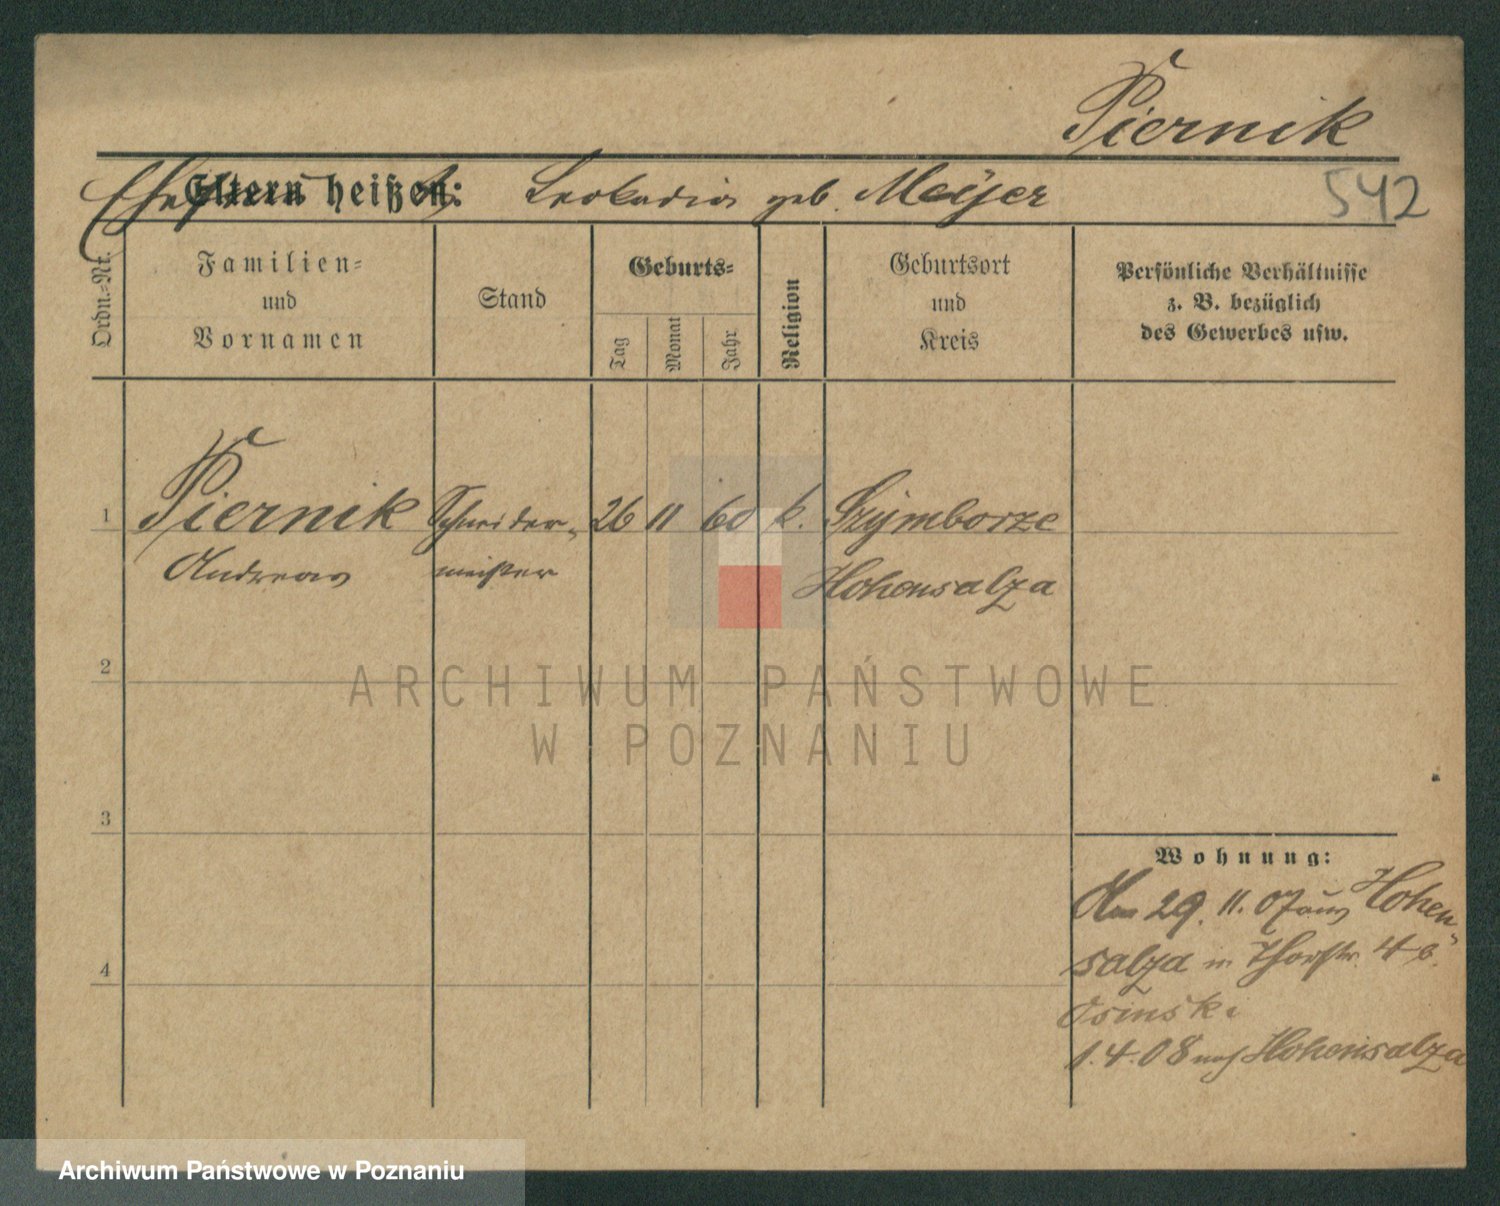 Piernik
Eltern heißen: Leokadia geb. Meÿer
542
Ordn.-Nr.
Familien-
und
Vornamen
Stand
Geburts-
Tag
Monat
Jahr
Religion
Geburtsort
und
Kreis
Persönliche Verhältnisse
z. B. bezüglich
des Gewerbes usw.
1 Piernik Schneider- 26 11 60 k. Szÿmborze
Andreas meister Hohensalza
2
ARCHIWUM PAŃSTWOWE
W POZNANIU
3
Wohnung:
Am 29. 11. 07 aus Hohen-
salza in Thorstr. 4 b.
4
Osinski
1. 4. 08 nach Hohensalza
Archiwum Państwowe w Poznaniu